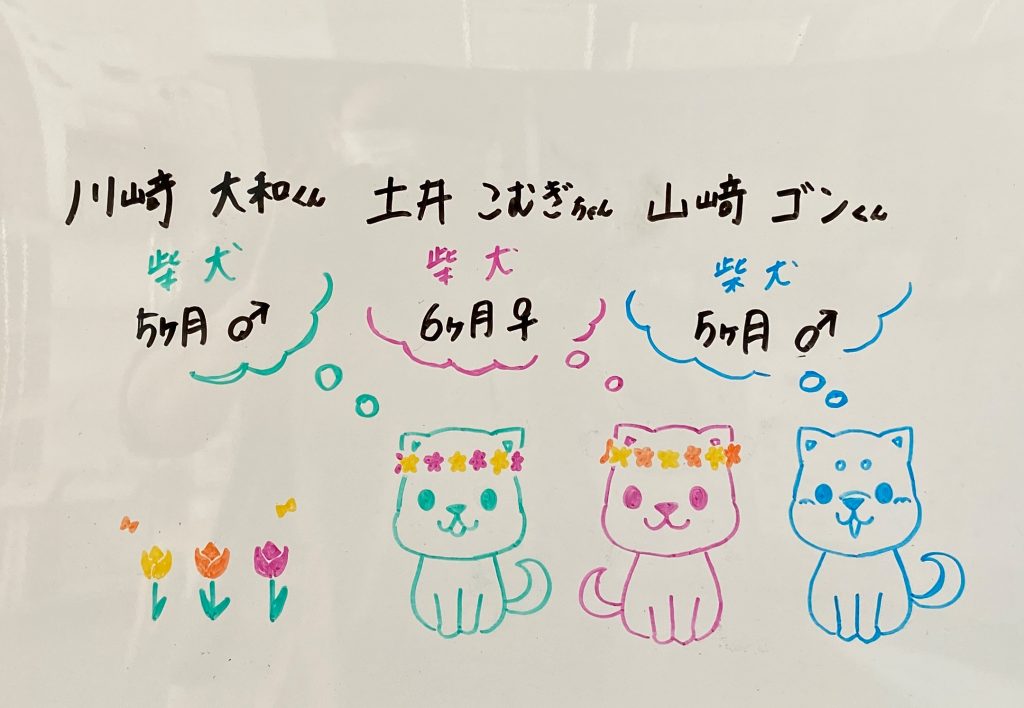 川﨑 大和くん
柴犬
5ヶ月 ♂
土井 こむぎちゃん
柴犬
6ヶ月 ♀
山﨑 ゴンくん
柴犬
5ヶ月 ♂